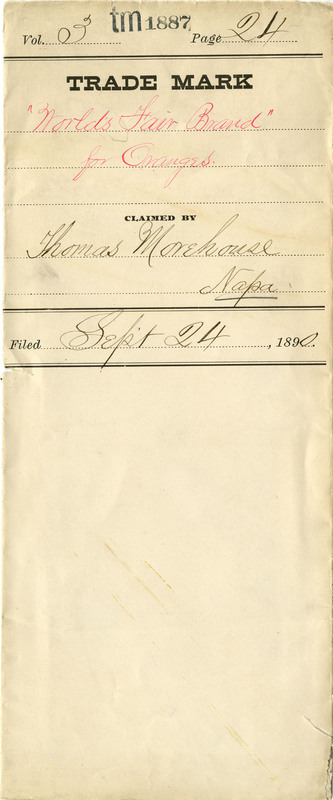 tm 1887
Vol. 3 Page 24
TRADE MARK
"Worlds Fair Brand"
for Oranges.
CLAIMED BY
Thomas Morehouse
Napa.
Filed Sept 24, 1890.